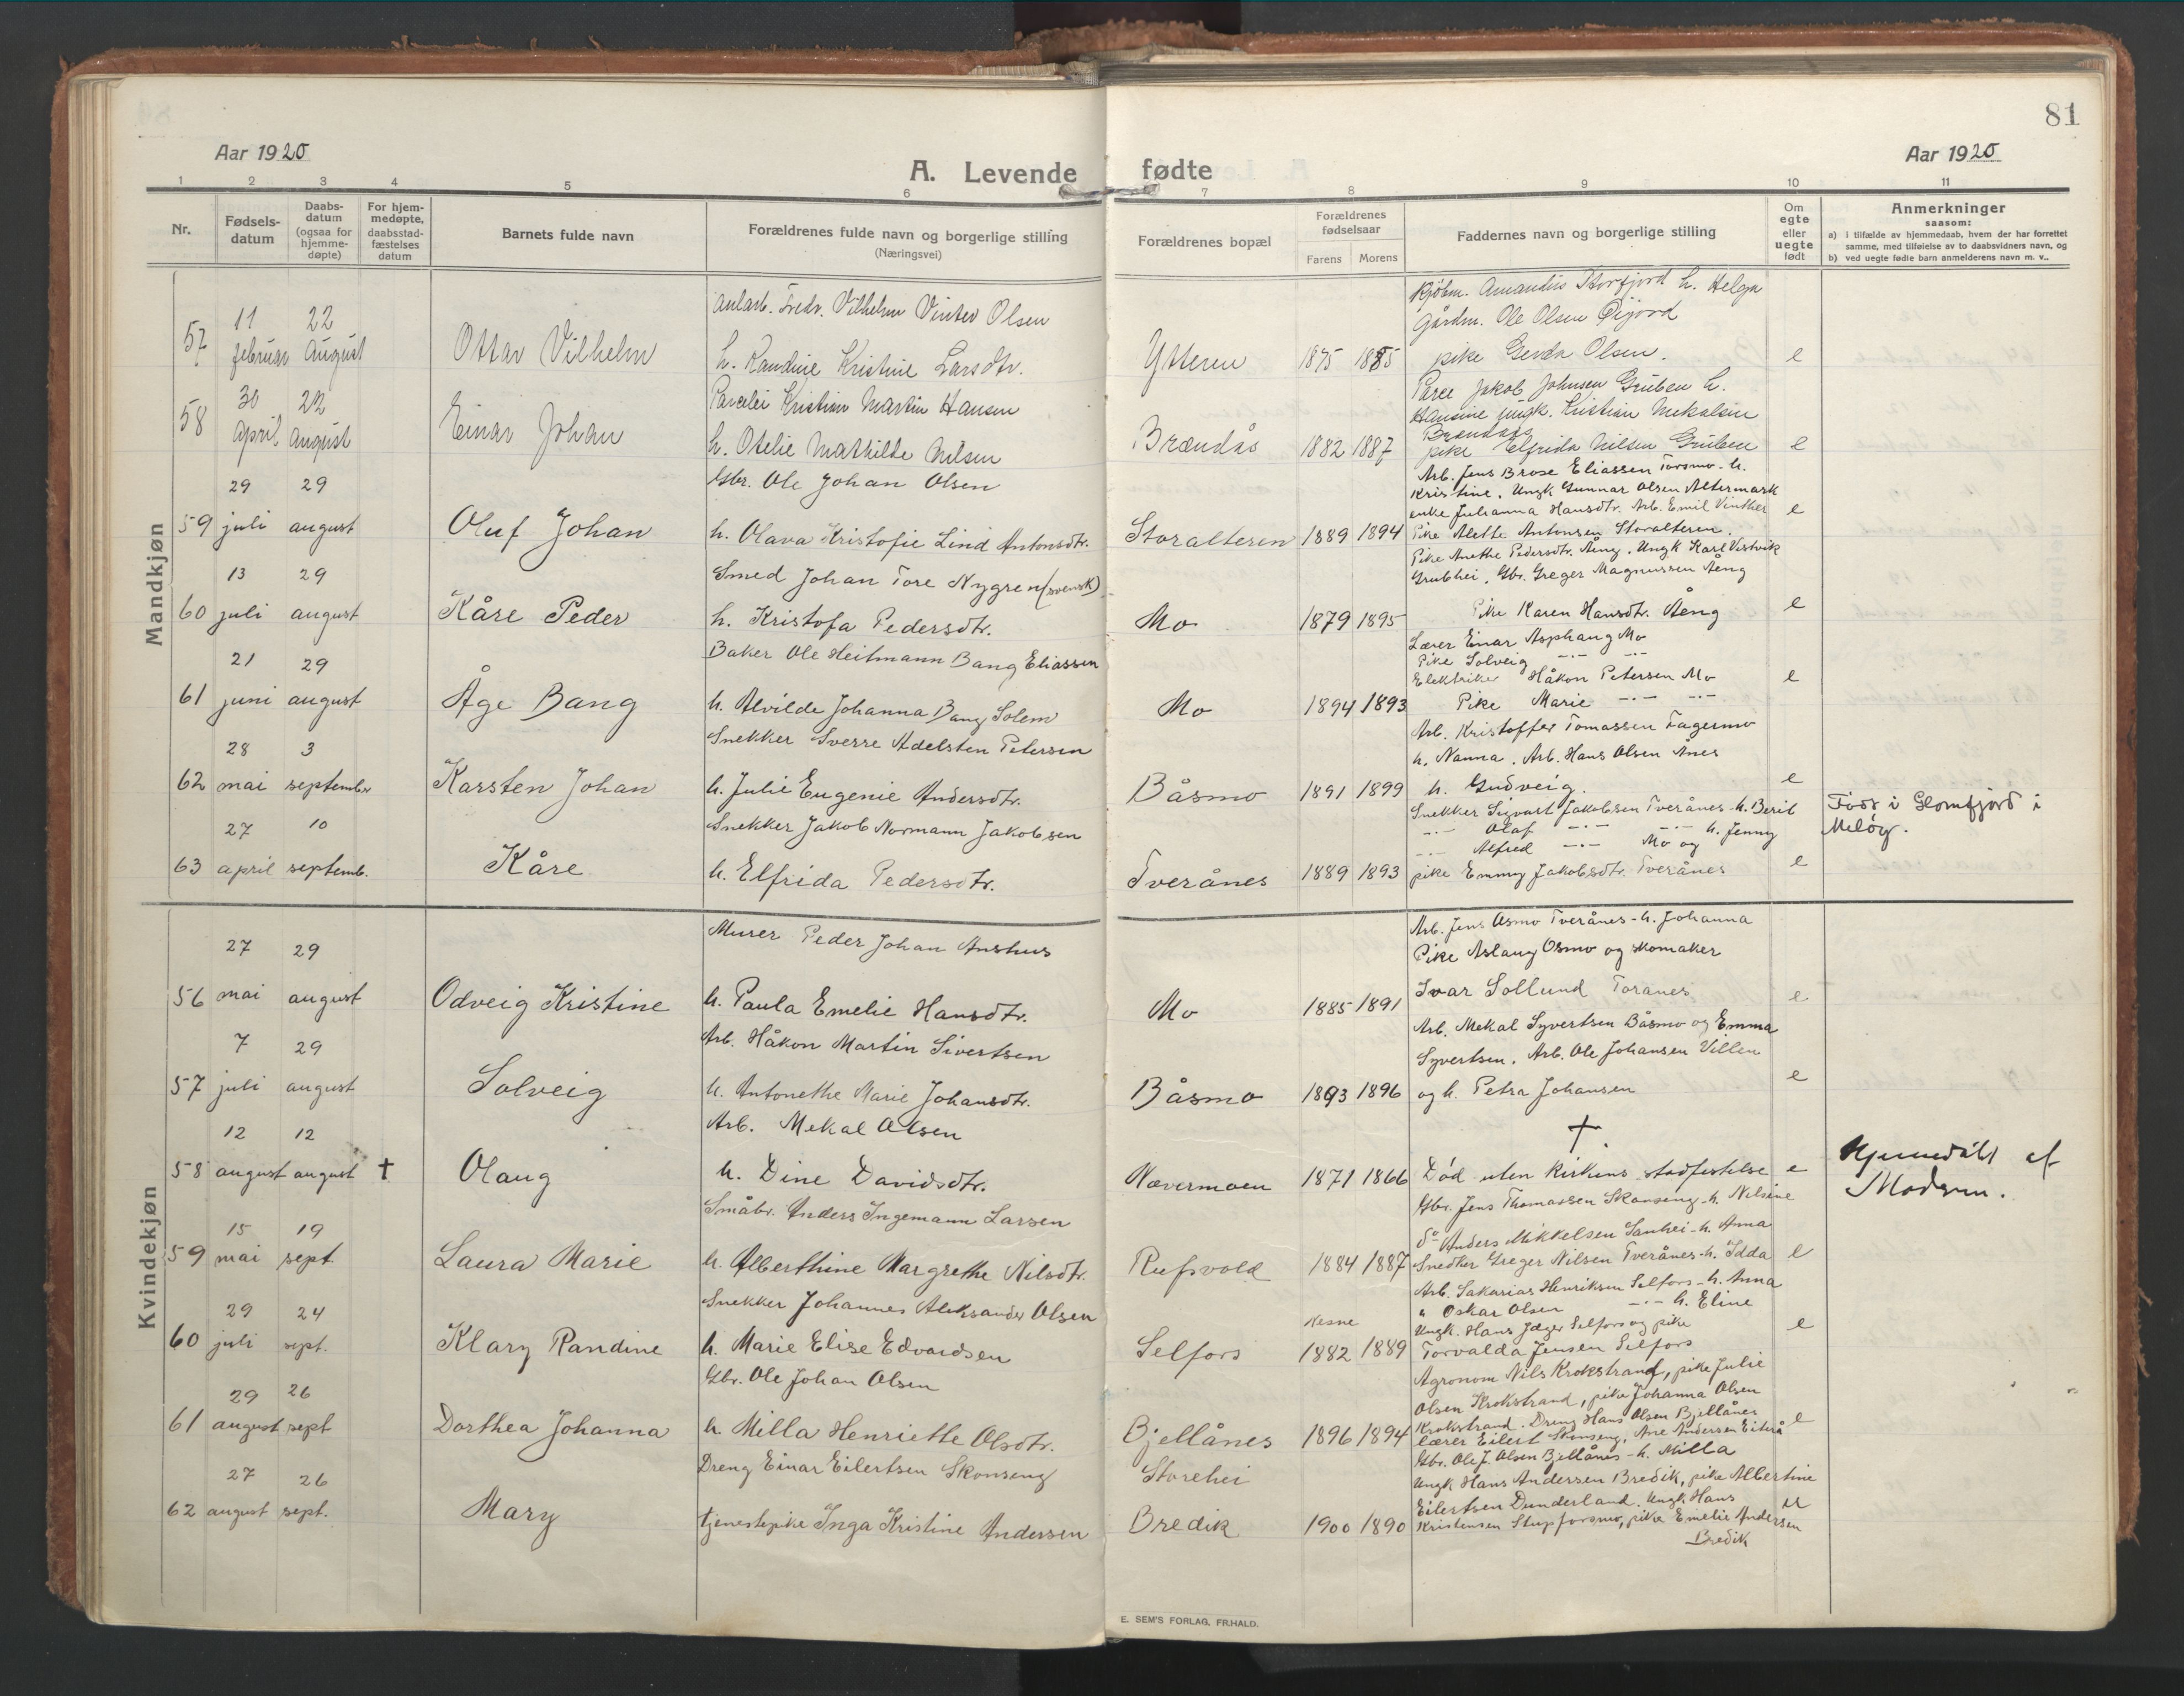 81
Aar 1920
A. Levende
fødte
Aar 1920
1 2 3 4 5 6 7 8 9 10 11
Nr.
Fødsels-
datum
Daabs-
datum
(ogsaa for
hjemme-
døpte)
For hjem-
medøpte,
daabsstad-
fæstelses
datum
Barnets fulde navn
Forældrenes fulde navn og borgerlige stilling
(Næringsvei)
Forældrenes bopæl
Forældrenes
fødselsaar
Farens Morens
Faddernes navn og borgerlige stilling
Om
egte
eller
uegte
født
Anmerkninger
saasom:
a) i tilfælde av hjemmedaab, hvem der har forrettet
samme, med tilføielse av to daabsvidners navn, og
b) ved uegte fødte barn anmelderens navn m. v..
Mandkjøn
57
11 februar
22 August
Ottar Vilhelm
Anlarb. Fredr. Vilhelm Vinter Olsen
h. Randine Kristine Larsdtr.
Ytteren
1875 1885
Kjøbm. Amandus Storfjord h. Helga
Gårdm. Ole Olsen Øijord
pike Gerda Olsen.
e
58
30 April
22 August
Einar Johan
Parcelei Kristian Martin Hansen
h. Otelie Mathilde Nilsen
Brændås
1882 1887
Parce Jakob Johnsen Gruben h.
Hansine ungk. Kristian Mikalsen
Brændås
pike Elfrida Nilsen Gruben
e
59
29 juli
29 august
Oluf Johan
Gbr. Ole Johan Olsen
h. Olava Kristofie Lind Antonsdtr.
Storalteren
1889 1894
Arb. Jens Brose Eliassen Torsmo - h.
Kristine. Ungk Gunnar Olsen Altermark
enke Julianna Hansdtr. Arb. Emil Vinther
Pike Alette Antonsen Storalteren.
e
60
13 juli
29 august
Kåre Peder
Smed Johan Tore Nygren (svensk)
h. Kristofa Pedersdtr.
Mo
1879 1895
Pike Anethe Pedersdtr. Åeng. Ungk Karl Vestvik
Grubhei, Gbr. Greger Magnussen Åeng
Pike Karen Hansdtr. Åeng
e
61
21 juni
29 august
Åge Bang
Baker Ole Heitmann Bang Eliassen
h. Alvilde Johanna Bang Solem
Mo
1894 1893
Lærer Einar Asphaug Mo
Pike Solveig -.- -.-
Elektriker Håkon Petersen Mo
Pike Marie -.- -.-
e
62
28 mai
3 september
Karsten Johan
Snekker Sverre Adelsten Petersen
h. Julie Eugenie Andersdtr.
Båsmo
1891 1899
Arb. Kristoffer Tomassen Fagermo
h. Nanna. Arb. Hans Olsen Ånes
h. Gudveig.
e
Født i Glomfjord i
Meløy.
63
27 april
10 septemb.
Kåre
Snekker Jakob Normann Jakobsen
h. Elfrida Pedersdtr.
Tverånes
1889 1893
Snekker Sigvart Jakobsen Tverånes - h. Berit
-.- Olaf -.- -.- h. Jenny
-.- Alfred -.- Mo og
pike Emmy Jakobsdtr. Tverånes
e
Kvindekjøn
56
27 mai
29 august
Odveig Kristine
Murer Peder Johan Anshus
h. Paula Emelie Hansdtr.
Mo
1885 1891
Arb. Jens Osmo Tverånes - h. Johanna
Pike Aslaug Osmo og skomaker
Ivar Sollund Toranes
e
57
7 juli
29 august
Solveig
Arb. Håkon Martin Sivertsen
h. Antonethe Marie Johansdtr.
Båsmo
1893 1896
Arb. Mekal Syvertsen Båsmo og Emma
Syvertsen. Arb. Ole Johansen Villen
og h. Petra Johansen
e
58
12 august
12 august
†
Olaug
Arb. Mekal Olsen
h. Dine Davidsdtr.
Nævermoen
1871 1866
†
Død uten kirkens stadfestelse
e
Hjemmedöbt af
Modren.
59
15 mai
19 sept.
Laura Marie
Småbr. Anders Ingemann Larsen
h. Alberthine Margrethe Nilsdtr.
Rufsvold
1884 1887
Gbr. Jens Thomassen Skonseng - h. Nilsine
do Anders Mikkelsen Sauhei - h. Anna
Snedker Greger Nilsen Tverånes - h. Idda
e
60
29 juli
24 sept.
Klary Randine
Snekker Johannes Aleksander Olsen
h. Marie Elise Edvardsen
Nesne
Selfors
1882 1889
Arb. Sakarias Henriksen Selfors - h. Anna
" Oskar Olsen -.- h. Eline
Ungk. Hans Jæger Selfors og pike
Torvalda Jensen Selfors
e
61
29 august
26 sept
Dorthea Johanna
Gbr. Ole Johan Olsen
h. Milla Henriette Olsdtr.
Bjellånes
1896 1894
Agronom Nils Krokstrand, pike Julie
Olsen Krokstrand, pike Johanna Olsen
Krokstrand. Dreng Hans Olsen Bjellånes
lærer Eilert Skonseng, Arne Andersen Eiterå
Gbr. Ole J. Olsen Bjellånes - h. Milla
e
62
27 august
26 sept.
Mary
Dreng Einar Eilertsen Skonseng
tjenestepike Inga Kristine Andersen
Storehei
Bredik
1900 1890
Ungk Hans Andersen Bredik, pike Albertine
Eilertsen Dunderland. Ungk Hans
Kristensen Stupforsmo, pike Emelie Andersen
Bredik
u
E. SEM'S FORLAG, FR.HALD.